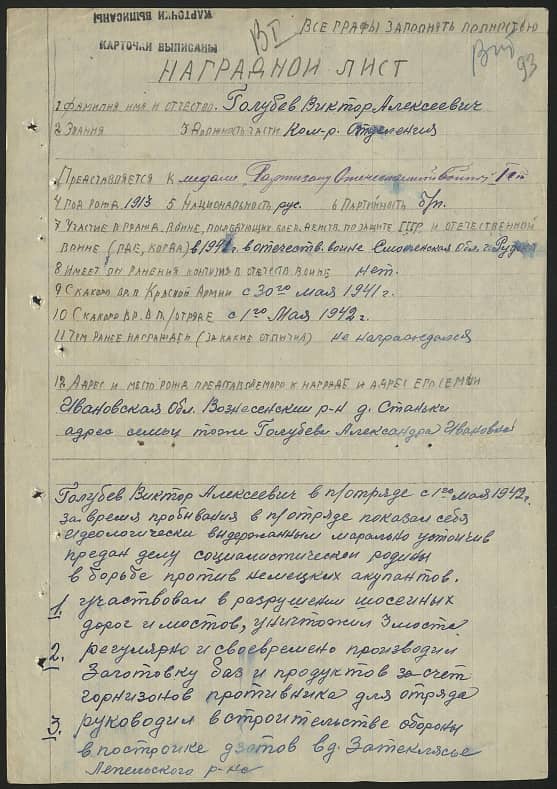 КАРТОЧКИ ВЫПИСАНЫ
КАРТОЧКИ ВЫПИСАНЫ
ВСЕ ГРАФЫ ЗАПОЛНЯТЬ ПОЛНОСТЬЮ
93
НАГРАДНОЙ ЛИСТ
1 Фамилия имя и отчество. Голубев Виктор Алексеевич
2 Звания 3 Должность части Ком-р. Отделения
Представляется к медали "Партизану Отечественной Войны" I ст
4 Год рожд. 1917 5 Национальность рус. 6 Партийность б/п.
7 Участие в гражд. войне, последующих боев. действ. по защите СССР и отечественной
войне (где, когда) в 1941 г. в отечеств. войне Смоленская Обл. г. Рудня
8 Имеет ли ранения контузия в отечеств войне нет.
9 С какого вр. в Красной Армии с 30го мая 1941 г.
10 С какого вр. в п/отряде с 1го Мая 1942 г.
11 Чем ранее награжден (за какие отличия) не награждался
12 Адрес и место рожд. представляемого к награде и адрес его семьи
Ивановская Обл. Вознесенский р-н д. Станки
адрес семьи тоже Голубеви Александра Ивановна
Голубев Виктор Алексеевич в п/отряде с 1го мая 1942 г.
за время пробивания в п/отряде показал себя
идеологически выдержанным морально устойчив
предан делу социалистической родины
в борьбе против немецких акупантов.
1. участвовал в разрушении шосейных
дорог и мостов, уничтожил 3 моста
2. регулярно и своевремено производил
Заготовку баз и продуктов за счет
горнизонов противника для отряда
3. руководил в строительстве обороны
в постройке дзотов в д. Затеклясье
Лепельского р-на